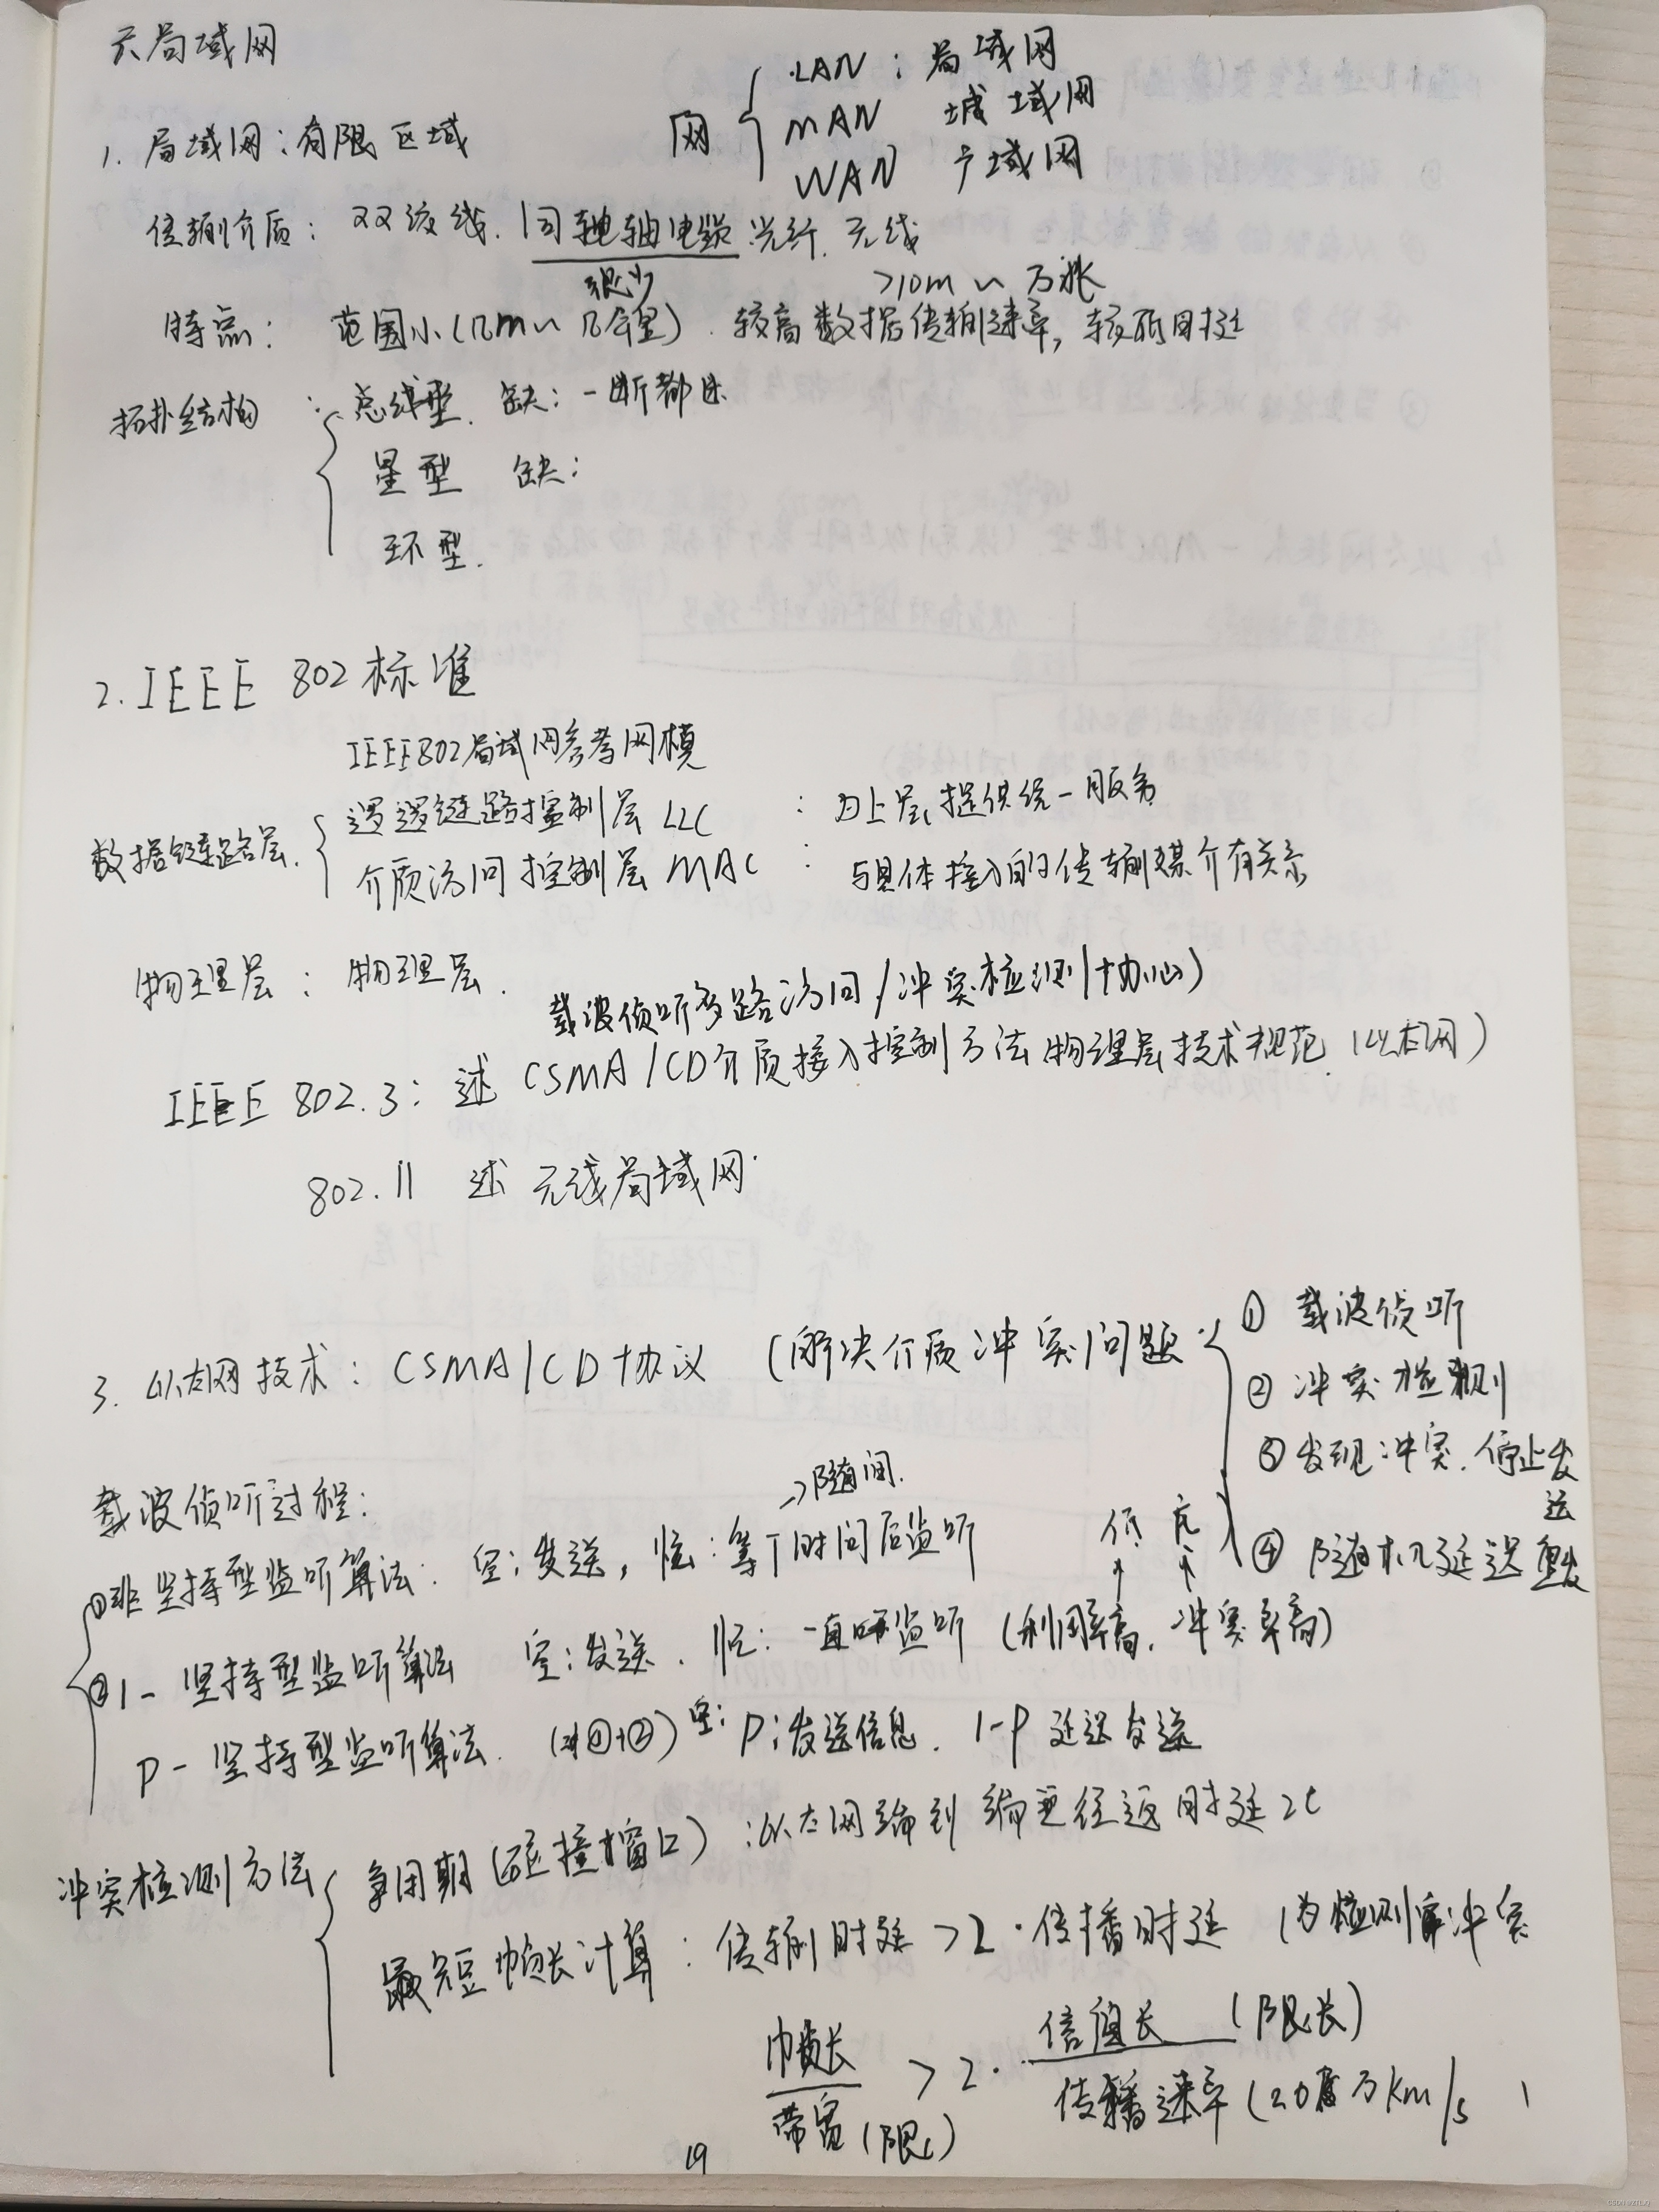 局域网
网 { LAN : 局域网
MAN 城域网
WAN 广域网
1. 局域网:有限区域
传输介质: 双绞线. 同轴电缆.光纤.无线
很少
>10m ~ 万兆
特点: 范围小(几m~几公里). 较高数据传输速率, 较低时延
拓扑结构: 总线型. 缺:一断都断
星型 缺:
环型.
2. IEEE 802 标准
IEEE802局域网参考网模
数据链路层. { 逻辑链路控制层 LLC : 为上层提供统一服务
介质访问控制层 MAC : 与具体接入的传输媒介有关系
物理层: 物理层.
载波侦听多路访问/冲突检测协议)
IEEE 802.3: 述 CSMA/CD介质接入控制方法物理层技术规范. (以太网)
802.11 述 无线局域网.
3. 以太网技术: CSMA/CD协议 (解决介质冲突问题
① 载波侦听
② 冲突检测
③ 发现冲突. 停止发送
④ 随机延迟重发
载波侦听过程:
→随间.
①非坚持型监听算法: 空:发送, 忙:等T时间后监听
低 低
②1- 坚持型监听算法 空:发送. 忙:一直监听 (利用率高. 冲突率高)
P- 坚持型监听算法. (对①+②) 空: P:发送信息. 1-P 延迟发送
冲突检测方法 { 争用期 (碰撞窗口) :以太网端到端往返时延2t
最短帧长计算: 传输时延 >2·传播时延 (为检测冲突
帧长/带宽(限) > 2· 信道长(限长)/传播速率(20万km/s
19
CSDN